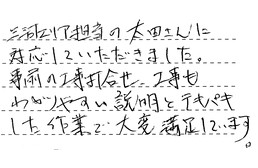 三河エリア担当の太田さんに
対応していただきました。
事前の工事打合せ、工事も
わかりやすい説明とテキパキ
した作業で大変満足しています。